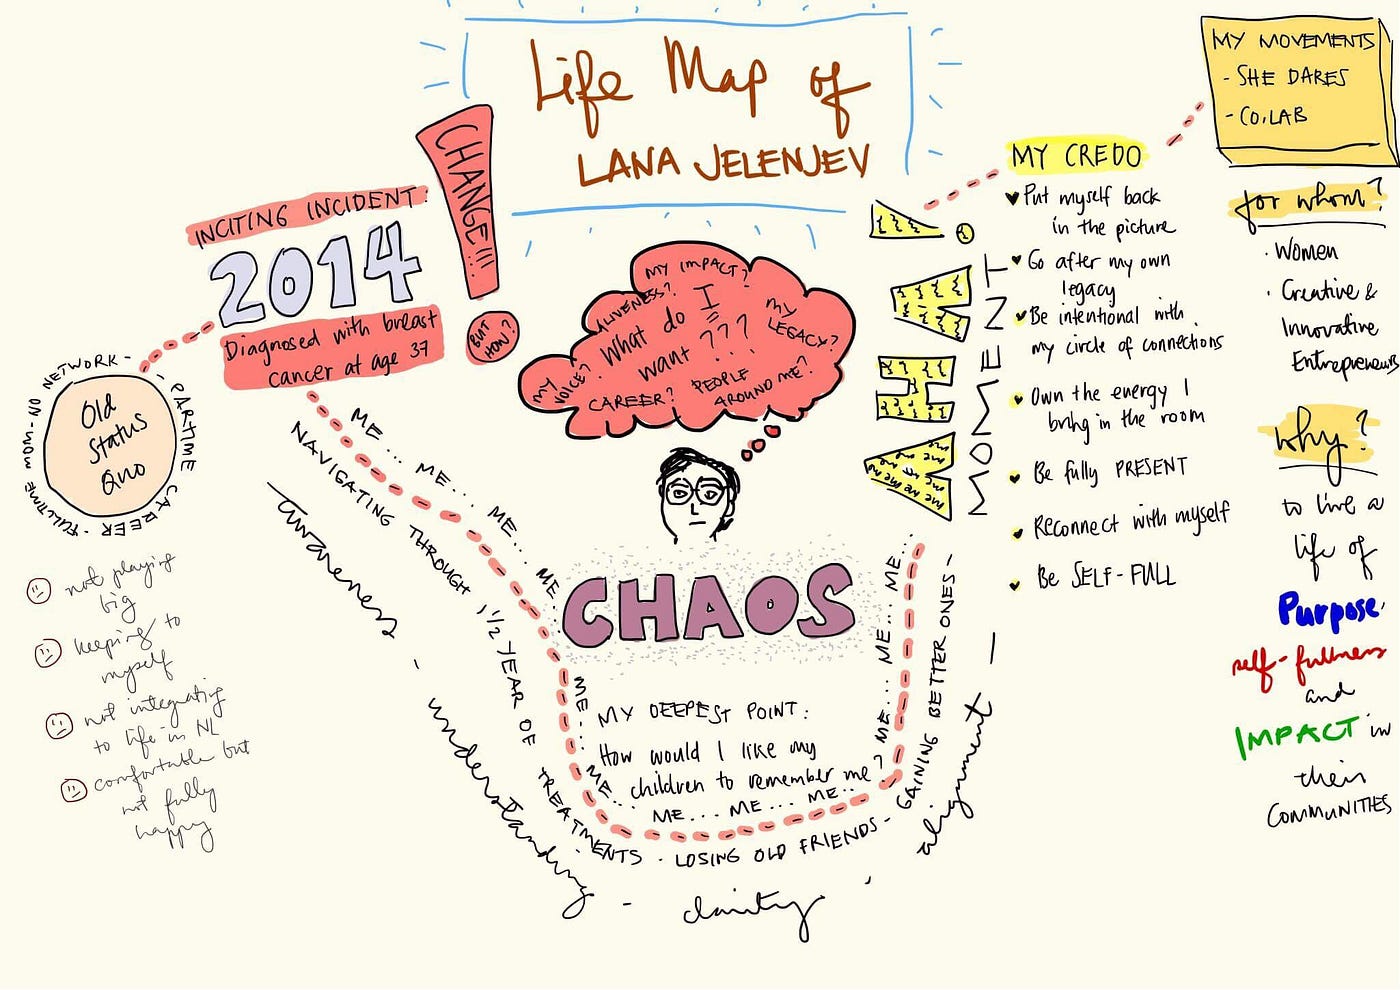 Life Map of
LANA JELENJEV
NETWORK - PARTIME CAREER - FULLTIME MOM - NO
Old
Status
Quo
not playing
big
keeping to
myself
not integrating
to life in NL
comfortable but
not fully
happy
INCITING INCIDENT:
2014
Diagnosed with breast
cancer at age 37
CHANGE!!!
BUT
HOW?
ME... ME... ME... ME... ME... ME... ME... ME... ME... ME... ME... ME...
NAVIGATING THROUGH 1 1/2 YEAR OF TREATMENTS - LOSING OLD FRIENDS - GAINING BETTER ONES -
awareness - understanding - clarity - alignment -
MY IMPACT?
ALIVENESS?
What do I
want ???
MY LEGACY?
MY VOICE?
CAREER?
PEOPLE
AROUND ME?
CHAOS
MY DEEPEST POINT:
How would I like my
children to remember me?
AHA!
MOMENT
MY CREDO
Put myself back
in the picture
Go after my own
legacy
Be intentional with
my circle of connections
Own the energy I
bring in the room
Be fully PRESENT
Reconnect with myself
Be SELF-FULL
MY MOVEMENTS
- SHE DARES
- CO.LAB
for whom?
. Women
. Creative &
Innovative
Entrepreneurs
why?
to live a
life of
Purpose,
self-fullness
and
IMPACT in
their
COMMUNITIES